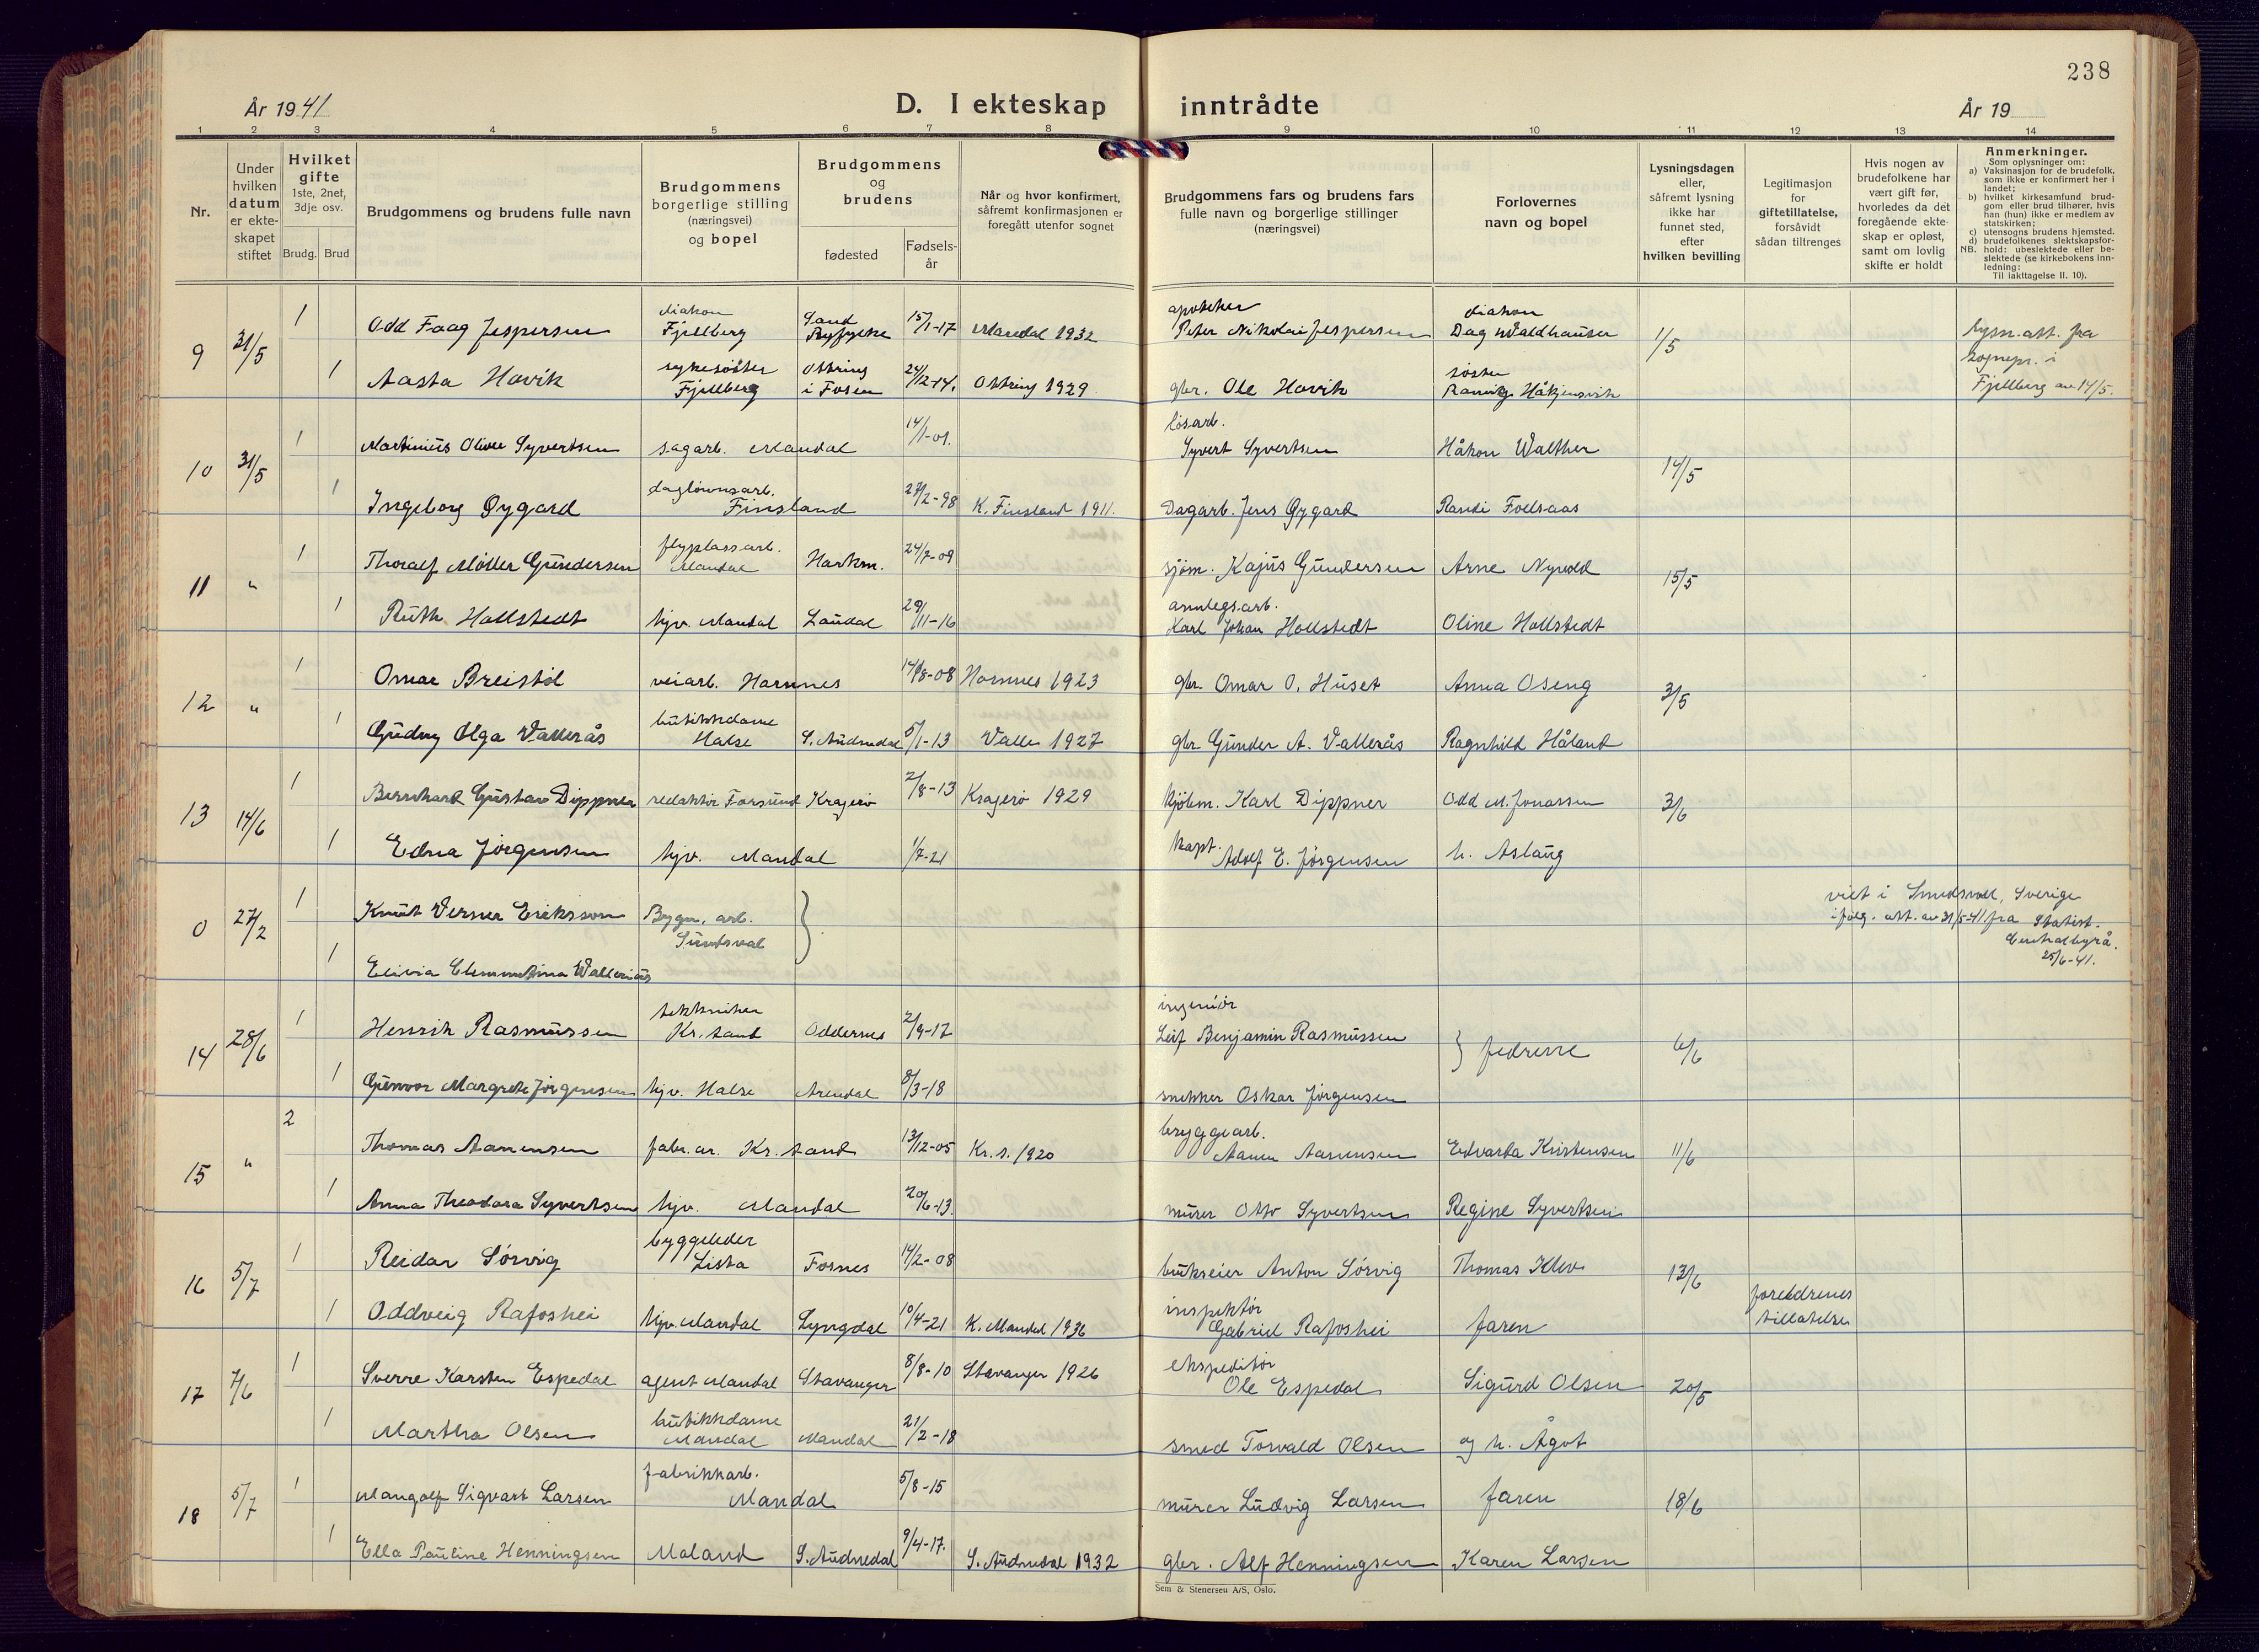 238
År 1941
D. I ekteskap inntrådte
År 19
1 2 3 4 5 6 7 8 9 10 11 12 13 14
Nr.
Under hvilken datum er ekteskapet stiftet
Hvilket gifte 1ste, 2net, 3dje osv.
Brudg. Brud
Brudgommens og brudens fulle navn
Brudgommens borgerlige stilling (næringsvei) og bopel
Brudgommens og brudens
fødested
Fødselsår
Når og hvor konfirmert, såfremt konfirmasjonen er foregått utenfor sognet
Brudgommens fars og brudens fars fulle navn og borgerlige stillinger (næringsvei)
Forlovernes navn og bopel
Lysningsdagen eller, såfremt lysning ikke har funnet sted, efter hvilken bevilling
Legitimasjon for giftetillatelse, forsåvidt sådan tiltrenges
Hvis nogen av brudefolkene har vært gift før, hvorledes da det foregående ekteskap er opløst, samt om lovlig skifte er holdt
Anmerkninger.
Som oplysninger om:
a) Vaksinasjon for de brudefolk, som ikke er konfirmert her i landet;
b) hvilket kirkesamfund brudgom eller brud tilhører, hvis han (hun) ikke er medlem av statskirken;
c) utensogns brudens hjemsted.
d) brudefolkenes slektskapsforhold: ubeslektede eller beslektede (se kirkebokens innledning:
NB. Til iakttagelse II. 10).
9 31/5 1 Odd Faag Jespersen diakon Fjellberg Sand Ryfylke 15/1-17 Mandal 1932 apoteker Peter Nikolai Jespersen diakon Dag Waldhauser 1/5 lysn.att. fra sognepr. i Fjellberg av 14/5.
1 Aasta Hovik sykesøster Fjellberg i Fosen 24/12-14. 1929 gbr. Ole Hovik søster
10 31/5 1 Martinius Oliver Syvertsen sagarb. Mandal 14/1-01. løsarb. Syvert Syvertsen Håkon Walther 14/5
1 Ingeborg Øygard daglønnsarb. Finsland 27/2-98 K. Finsland 1911. Dagarb. Jens Øygard Randi Foelsaas
11 " 1 Thoralf Møller Gundersen flyplassarb. Mandal Harkm. 24/7-09 sjøm. Kajus Gundersen Arne Nyvold 15/5
1 Ruth Hollstedt hjv. Mandal Laudal 29/11-16 annlegsarb. Karl Johan Hollstedt Oline Hollstedt
12 " 1 Omar Breistøl veiarb. Hornnes 14/8-08 Hornnes 1923 gbr. Omar O. Huset Anna Oseng 3/5
1 Gudny Olga Vallerås butikkdame Halse S. Audnedal 5/1-13 Valle 1927 gbr. Gunder A. Vallerås Ragnhild Håland
13 14/6 1 Bernhard Gustav Dippner redaktør Farsund Kragerø 2/8-13 Kragerø 1929 kjøbm. Karl Dippner Odd M. Jonassen 3/6
1 Edna Jørgensen hjv. Mandal 1/7-21 kapt. Adolf E. Jørgensen h. Aslaug
0 27/2 1 Knut Verner Eriksson Bygn. arb. Sundsval viet i Sundsvall, Sverige ifølg. att. av 31/5-41 fra Statist. Centralbyrå. 25/6-41.
1 Elivia Clementina Wallerius
14 28/6 1 Henrik Rasmussen tekkniker Kr.sand Oddernes 2/9-17 ingeniør Leif Benjamin Rasmussen } fedrene 6/6
1 Gunvor Margrete Jørgensen hjv. Halse Arendal 8/3-18 snekker Oskar Jørgensen
15 " 2 Thomas Aanensen fabr. ar. Kr. sand 13/12-05 Kr. s. 1920 bryggearb. Aanen Aanensen Edvarda Kristensen 11/6
1 Anna Theodora Syvertsen hjv. Mandal 20/6-13. murer Otto Syvertsen Regine Syvertsen
16 5/7 1 Reidar Sørvig byggeleder Lista Fosnes 14/2-08 bukseier Anton Sørvig Thomas Klev 13/6
1 Oddveig Rafoshei hjv. Mandal Lyngdal 10/4-21 K. Mandal 1936 inspektør Gabriel Rafoshei faren foreldrenes tillatelse
17 7/6 1 Sverre Karsten Espedal agent Mandal Stavanger 8/8-10 Stavanger 1926 ekspeditør Ole Espedal Sigurd Olsen 20/5
1 Martha Olsen butikkdame Mandal Mandal 21/2-18 smed Torvald Olsen og h. Ågot
18 5/7 1 Mangolf Sigvart Larsen fabrikkarb. Mandal 5/8-15 murer Ludvig Larsen faren 18/6
1 Ella Pauline Henningsen Moland S. Audnedal 9/4-17. S. Audnedal 1932 gbr. Alf Henningsen Karen Larsen
Sem & Stenersen A/S, Oslo.